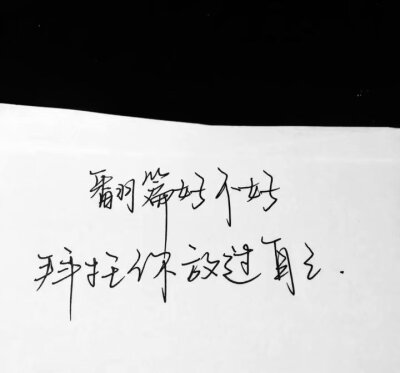 翻篇好不好
拜托你放过自己.